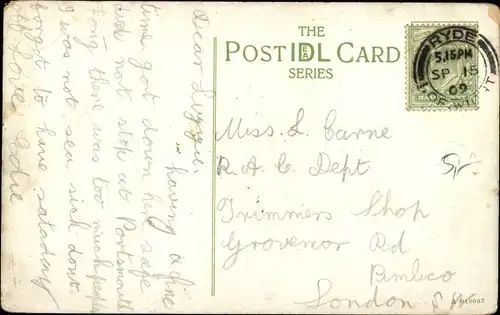 THE
POST IDL CARD
IDEAL
SERIES
RYDE
5.15PM
SP 15
09
I. OF WIGHT
Dear Lizzie
having a fine
time got down here safe
did not stop at Portsmouth
long there was too much people
I was not sea sick dont
forget to have saturday
Love Edie
Miss L. Carne
R.A.C Dept
Trimmers Shop
Grovenor Rd
Pimlico
London S.W.
A 010067